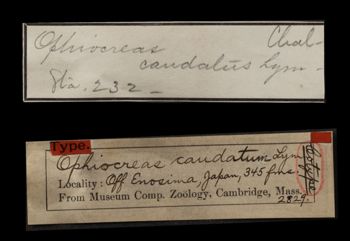 Ophiocreas Chal-
caudatus Lym-
Sta. 232-
Type.
Ophiocreas caudatum Lym
Locality: Off Enosima, Japan, 345 fms.
From Museum Comp. Zoölogy, Cambridge, Mass.
2829.